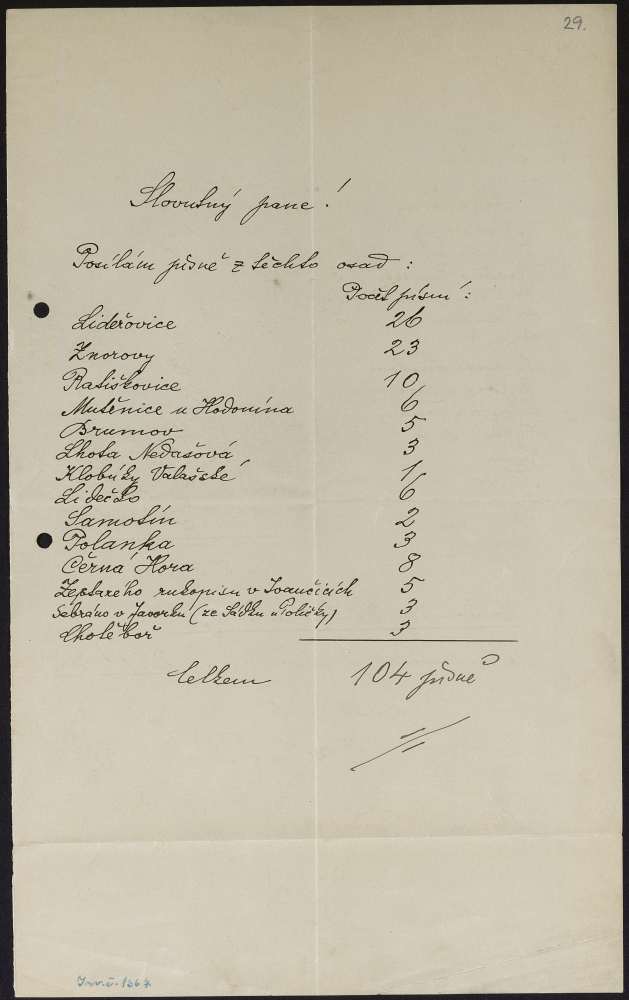 29.
Slovutný pane!
Posílám písně z těchto osad:
Počet písní:
Lideřovice 26
Znorovy 23
Ratiškovice 10
Mutěnice u Hodonína 6
Brumov 5
Lhota Nedašová 3
Klobúky Valašské 1
Lidečko 6
Samotín 2
Polanka 3
Černá Hora 8
Ze starého rukopisu v Ivančicích 5
Sebráno v Javorku (ze Sádku u Poličky) 3
Chotěboř 3
Celkem 104 písně